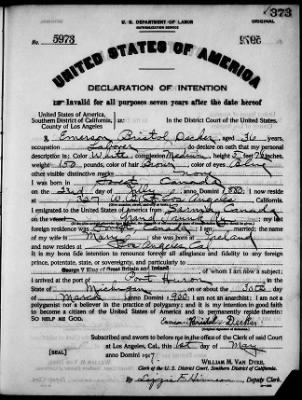 373
U. S. DEPARTMENT OF LABOR
NATURALIZATION SERVICE
ORIGINAL
No. 5973
5973
UNITED STATES OF AMERICA
DECLARATION OF INTENTION
Invalid for all purposes seven years after the date hereof
United States of America,
Southern District of California,
County of Los Angeles
In the District Court of the United States.
I, Emerson Bristol Decker, aged 36 years,
occupation Laborer, do declare on oath that my personal
description is: Color White, complexion Medium, height 5 feet inches,
weight 150 pounds, color of hair Brown, color of eyes Blue
other visible distinctive marks None
I was born in Forest, Canada
on the 23rd day of July, anno Domini 1880; I now reside
at Los Angeles
California.
I emigrated to the United States of America from Sarnia, Canada
on the vessel Grand Trunk; my last
foreign residence was Canada; I am married; the name of my
wife is Mary; she was born at Ireland
and now resides at Los Angeles Cal
It is my bona fide intention to renounce forever all allegiance and fidelity to any foreign
prince, potentate, state, or sovereignty, and particularly to
George V King of Great Britain and Ireland, of whom I am now a subject;
I arrived at the port of Port Huron, in the
State of Michigan, on or about the 30th day
of March, anno Domini 1900; I am not an anarchist; I am not a
polygamist nor a believer in the practice of polygamy; and it is my intention in good faith
to become a citizen of the United States of America and to permanently reside therein:
SO HELP ME GOD.
Emerson Bristol Decker
Subscribed and sworn to before me in the office of the Clerk of said Court
at Los Angeles, Cal., this 1st day of May
anno Domini 1917
[SEAL]
WILLIAM M. VAN DYKE,
Clerk of the U. S. District Court, Southern District of California.
By Deputy Clerk.